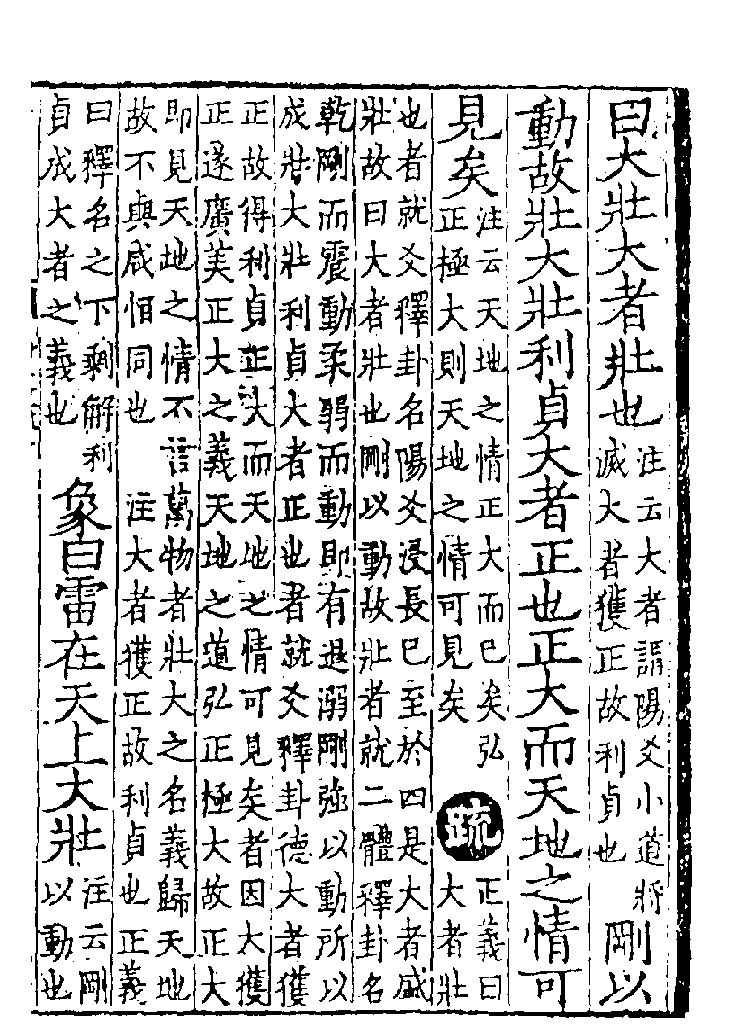 曰大壯大者壯也注云大者謂陽爻小道將
滅大者獲正故利貞也剛以
動故壯大壯利貞大者正也正大而天地之情可
見矣注云天地之情正大而已矣弘
正極大則天地之情可見矣疏正義曰
大者壯
也者就爻釋卦名陽爻浸長已至於四是大者盛
壯故曰大者壯也剛以動故壯者就二體釋卦名
乾剛而震動柔弱而動即有退溺剛強以動所以
成壯大壯利貞大者正也者就爻釋卦德大者獲
正故得利貞正大而天地之情可見矣者因大獲
正遂廣美正大之義天地之道弘正極大故正大
即見天地之情不言萬物者壯大之名義歸天地
故不與咸恒同也 注大者獲正故利貞也正義
曰釋名之下剩解利
貞成大者之義也象曰雷在天上大壯注云剛
以動也